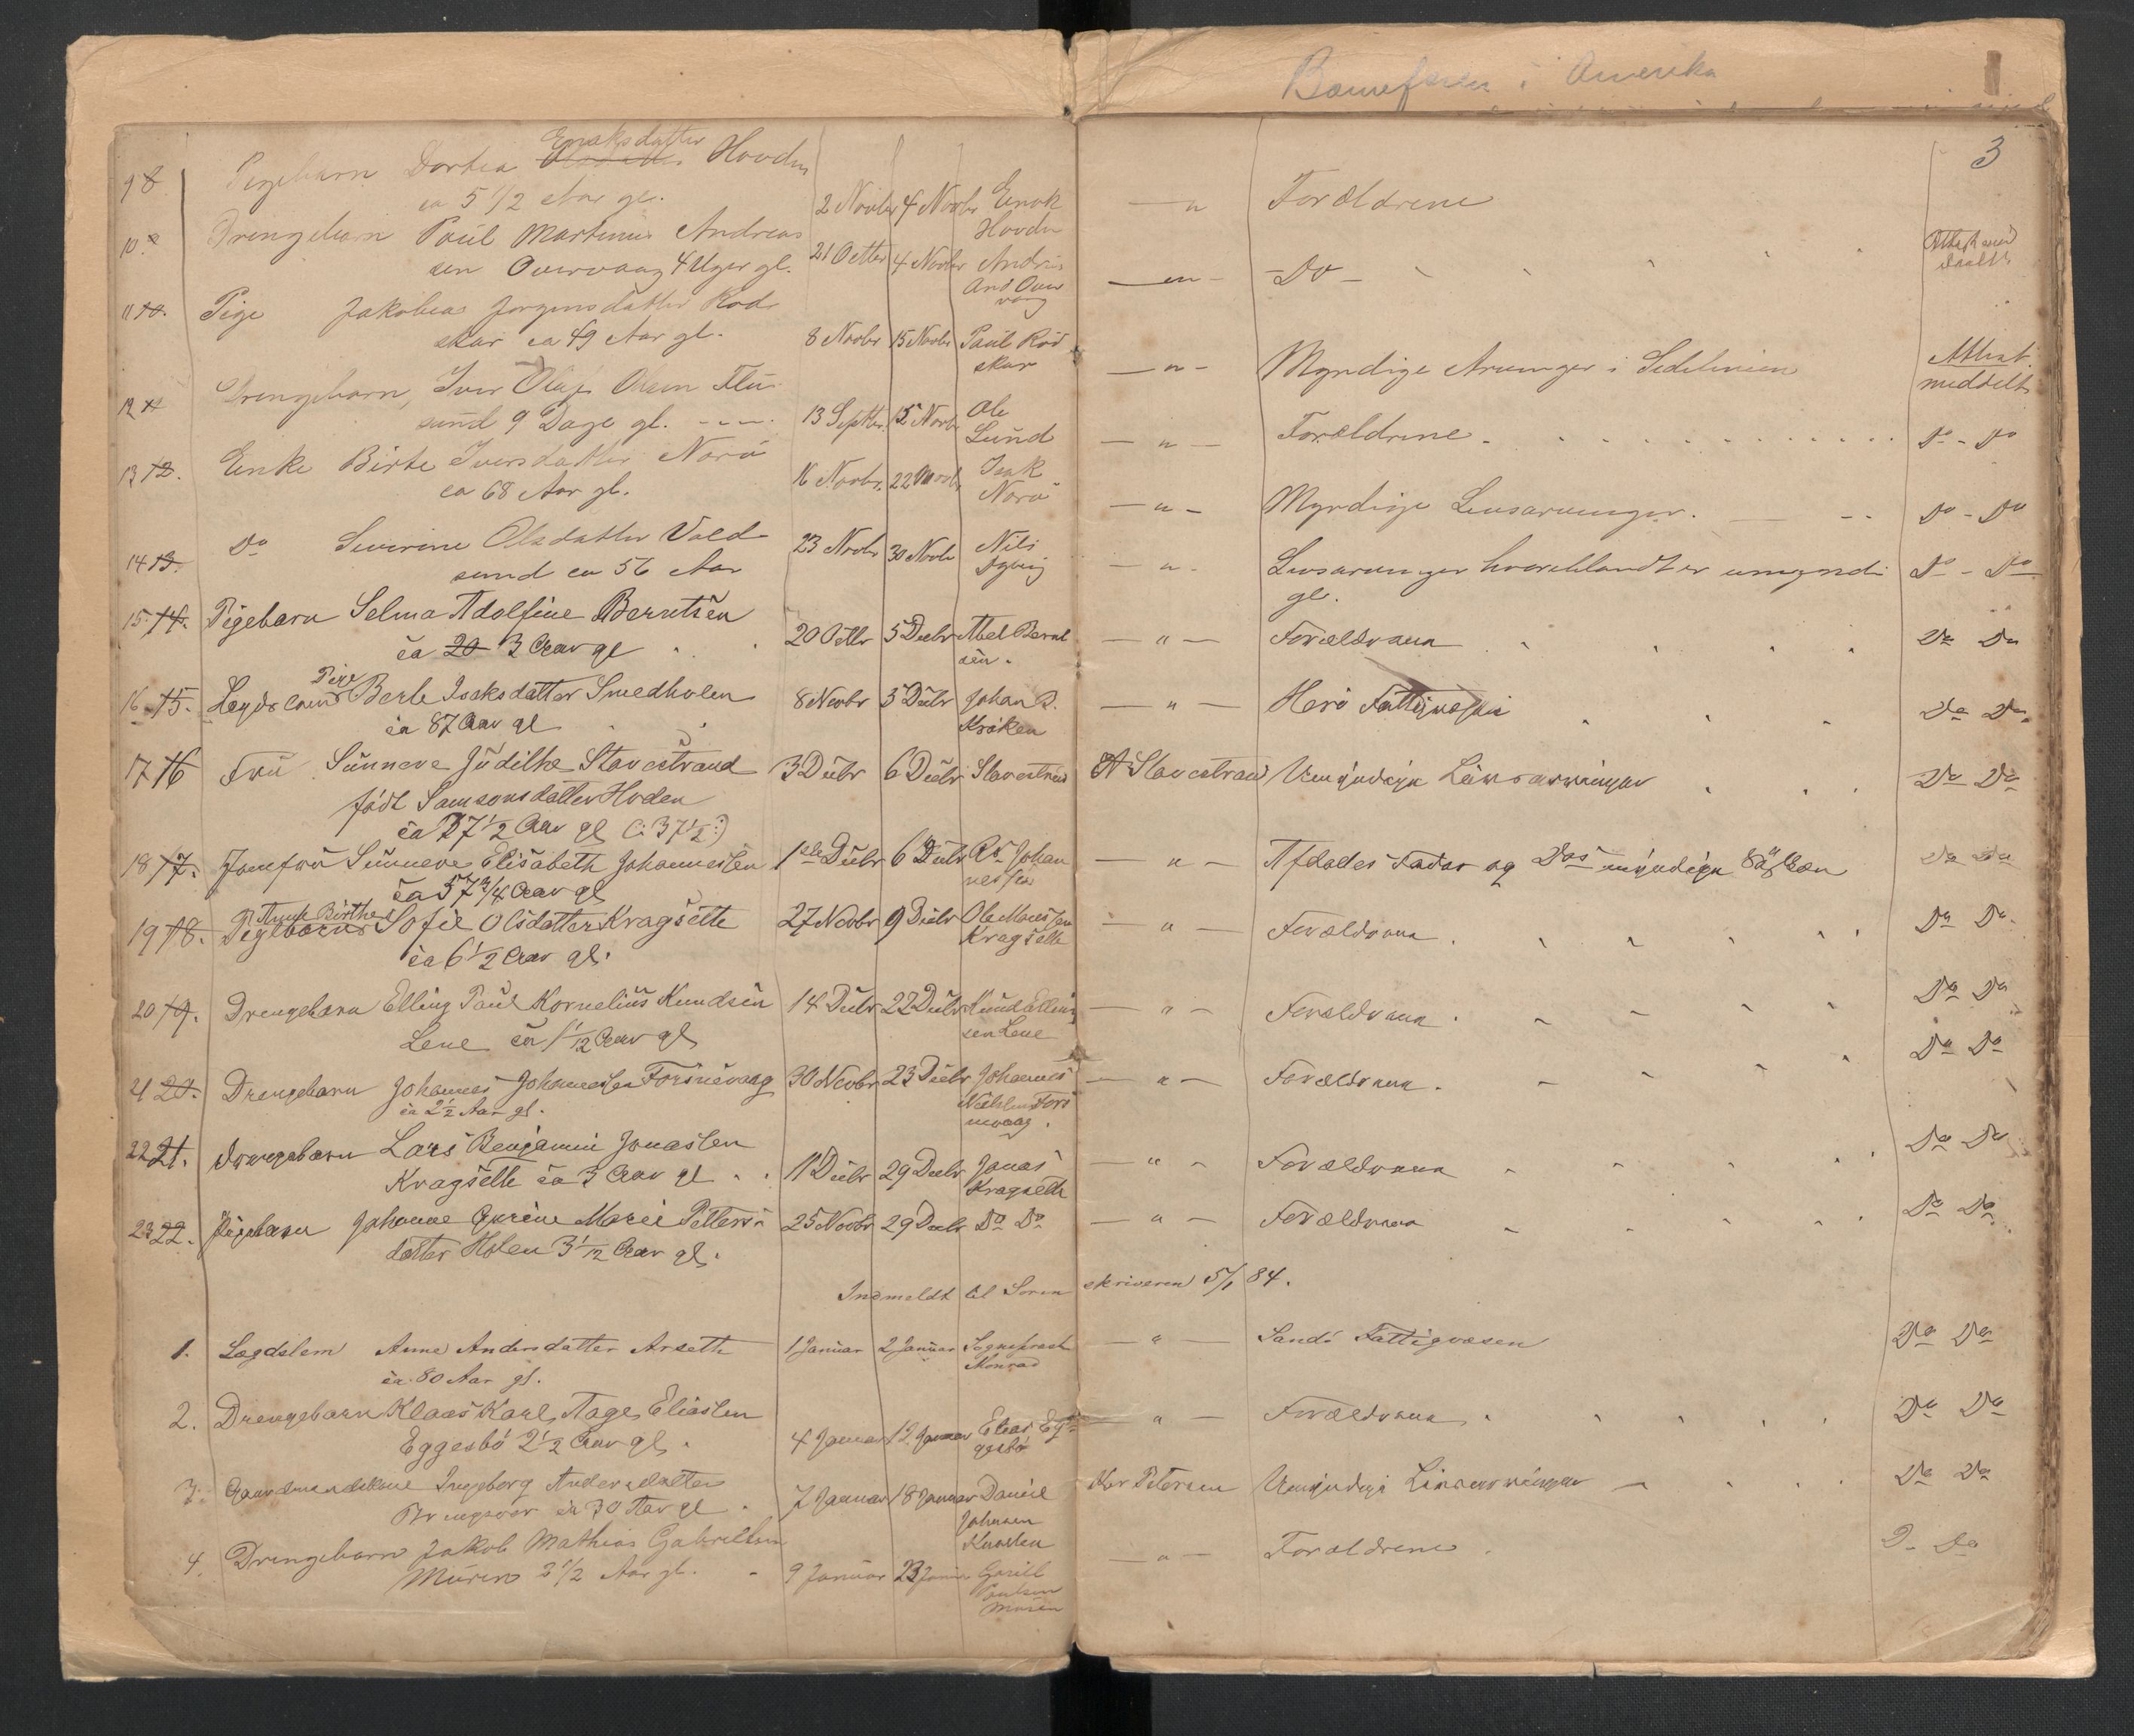 i Amerika
3
9 8. Pigebarn Dortea Enoksdatter Hovden
ca 5 1/2 Aar gl. 2 Novbr 4 Novbr Enok Hovden — " Forældrene
10. 9 Drengebarn Paul Martinus Andreas
sen Overvaag 4 Uger gl. 21 Octbr 4 Novbr Andreas And Over vaag — " — Do —
11 10. Pige Jakobea Jorgensdatter Rod
skar ca 49 Aar gl. 8 Novbr 15 Novbr Paul Rod skar — " — Myndige Arvinger i Sidelinien Attest meddelt
12 11 Drengebarn, Iver Olaf Olsen Flu
sund 9 Dage gl. 13 Septbr. 15 Novbr Ole Lund — " — Forældrene Do - Do
13 12. Enke Birte Iversdatter Narö
ca 68 Aar gl. 16 Novbr. 22 Novbr Isak Narö — " — Myndige Livsarvinger. Do - Do
14 13. Do Severine Olsdatter Vold
sund ca 56 Aar 23 Novbr 30 Novbr Nils — " — Livsarvinger hvoriblandt er umyndi
ge. Do - Do
15 14. Pigebarn Selma Adolfine Berntsen
ca 20 3 Aar gl 20 Octbr 5 Decbr Abel Bernt sen. — " — Forældrene Do Do
16 15. Lægdslem Pige Berte Isaksdatter Smedholen
ca 87 Aar gl 8 Novbr 5 Decbr Johan B. Kroken — " — Herö Fattigvæsen Do Do
17 16 Fru Sunneve Judithe Stavestrand 3 Decbr 6 Decbr Stavestrand A Stavestrand Umyndige Livsarvinger Do Do
födt Samsonsdatter Hoden
ca 37 1/2 Aar gl (: 37 1/2 :)
18 17. Jomfru Sunneve Elisabeth Johannessen 1ste Decbr 6 Decbr Johan nessen — " — Afdødes Fader og Do's myndige Søsken Do Do
ca 57 3/4 Aar gl
19 18. Pigebarn Anne Birthe Sofie Olsdatter Kragsette 27 Novbr 9 Decbr Ole Monssen Kragsette — " — Forældrene Do Do
ca 6 1/2 Aar gl.
20 19. Drengebarn Elling Paul Kornelius Knudsen 14 Decbr 22 Decbr Knud Elling sen Lene — " — Forældrene Do Do
Lene ca 1 1/12 Aar gl
21 20. Drengebarn Johannes Johannessen Forsnevaag 30 Novbr 23 Decbr Johannes Nielsen Fors nevaag. — " — Forældrene. Do Do
ca 2 1/2 Aar gl.
22 21. Drengebarn Lars Benjamin Jonassen
Kragsette ca 3 Aar gl 11 Decbr 29 Decbr Jonas Kragsette — " — Forældrene Do Do
23 22. Pigebarn Johanne Gurine Marie Petters
datter Holen 3 1/12 Aar gl. 25 Novbr 29 Decbr Do Do — " — Forældrene Do Do
Indmeldt til Soren skriveren 5/1 84.
1. Lægdslem Anne Andersdatter Arseth 1 Januar 2 Januar Sogneprest Monrad — " — Sandö Fattigvæsen Do Do
ca. 80 Aar gl.
2. Drengebarn Klaas Karl Aage Eliassen
Eggesbö 2 1/2 Aar gl. 4 Januar 12 Januar Elias Eg gesbö — " — Forældrene Do Do
3. Gaardmandskone Ingeborg Andersdatter
ca 70 Aar gl 7 Januar 18 Januar Daniel Johnsen Petersen Umyndige Livsarvinger Do Do
4. Drengebarn Jakob Mathias Gabrielsen
Muren 2 1/2 Aar gl. 9 Januar 23 Januar Paulsen Muren — " — Forældrene. Do Do